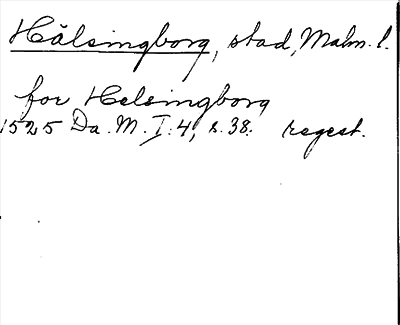 Hälsingborg, stad, Malm. l.
for Helsingborg
1525 Da. M. I: 4, s. 38. regest.